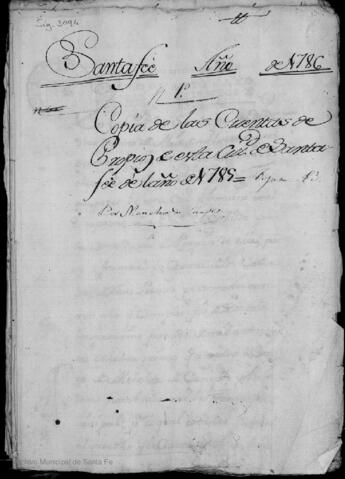 Santa fee Año de 1786
N 1º
Copia de las Cuentas de
Propios de esta Ciud. de Santa
fee del año de 1785=
Archivo Municipal de Santa Fe